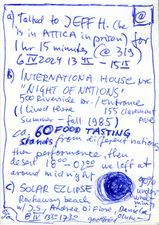 a) Talked to JEFF H. (he
is in ATTICA in prison) for
1 hr 15 minutes (@ 319)
6 IV 2024 13 45 - 15 15
b) INTERNATIONAL HOUSE NYC
"NIGHT OF NATIONS"
500 Riverside Dr. / entrance
(I lived there 155 Claremont
Summer - fall 1985) Ave
ca. 60 FOOD TASTING
stands from different nations
then performance, then
desert 18 00 - 0 30 we left at
around midnight
c) SOLAR ECLIPSE 90%
Rockaway beach
w/ J.S., Andrea di Fiore, Denise
8 IV